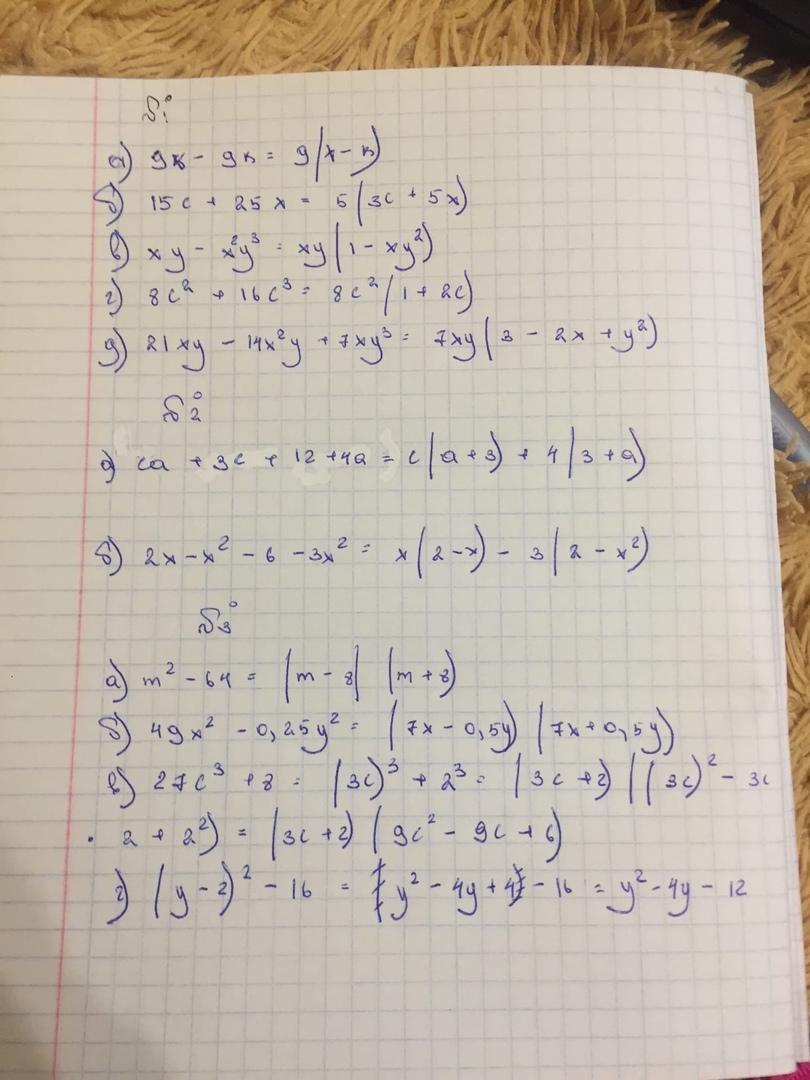 №1
а) 9x - 9к = 9(x - к)
б) 15c + 25x = 5(3c + 5x)
в) xy - x²y³ = xy(1 - xy²)
г) 8c² + 16c³ = 8c²(1 + 2c)
д) 21xy - 14x²y + 7xy³ = 7xy(3 - 2x + y²)
№2
а) ca + 3c + 12 + 4a = c(a + 3) + 4(3 + a)
б) 2x - x² - 6 - 3x² = x(2 - x) - 3(2 - x²)
№3
а) m² - 64 = (m - 8) (m + 8)
б) 49x² - 0,25y² = (7x - 0,5y) (7x + 0,5y)
в) 27c³ + 8 = (3c)³ + 2³ = (3c + 2) ((3c)² - 3c
· 2 + 2²) = (3c + 2) (9c² - 9c + 6)
г) (y - 2)² - 16 = y² - 4y + 4 - 16 = y² - 4y - 12